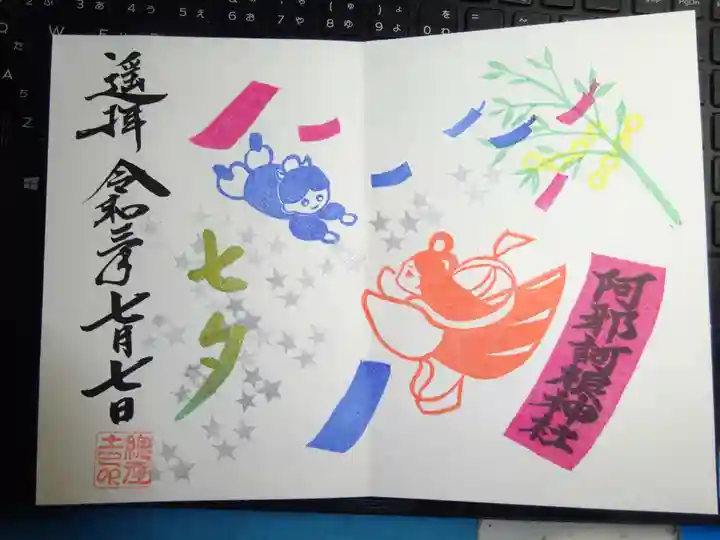 遥拝 令和三年七月七日
七夕
阿邪訶根神社